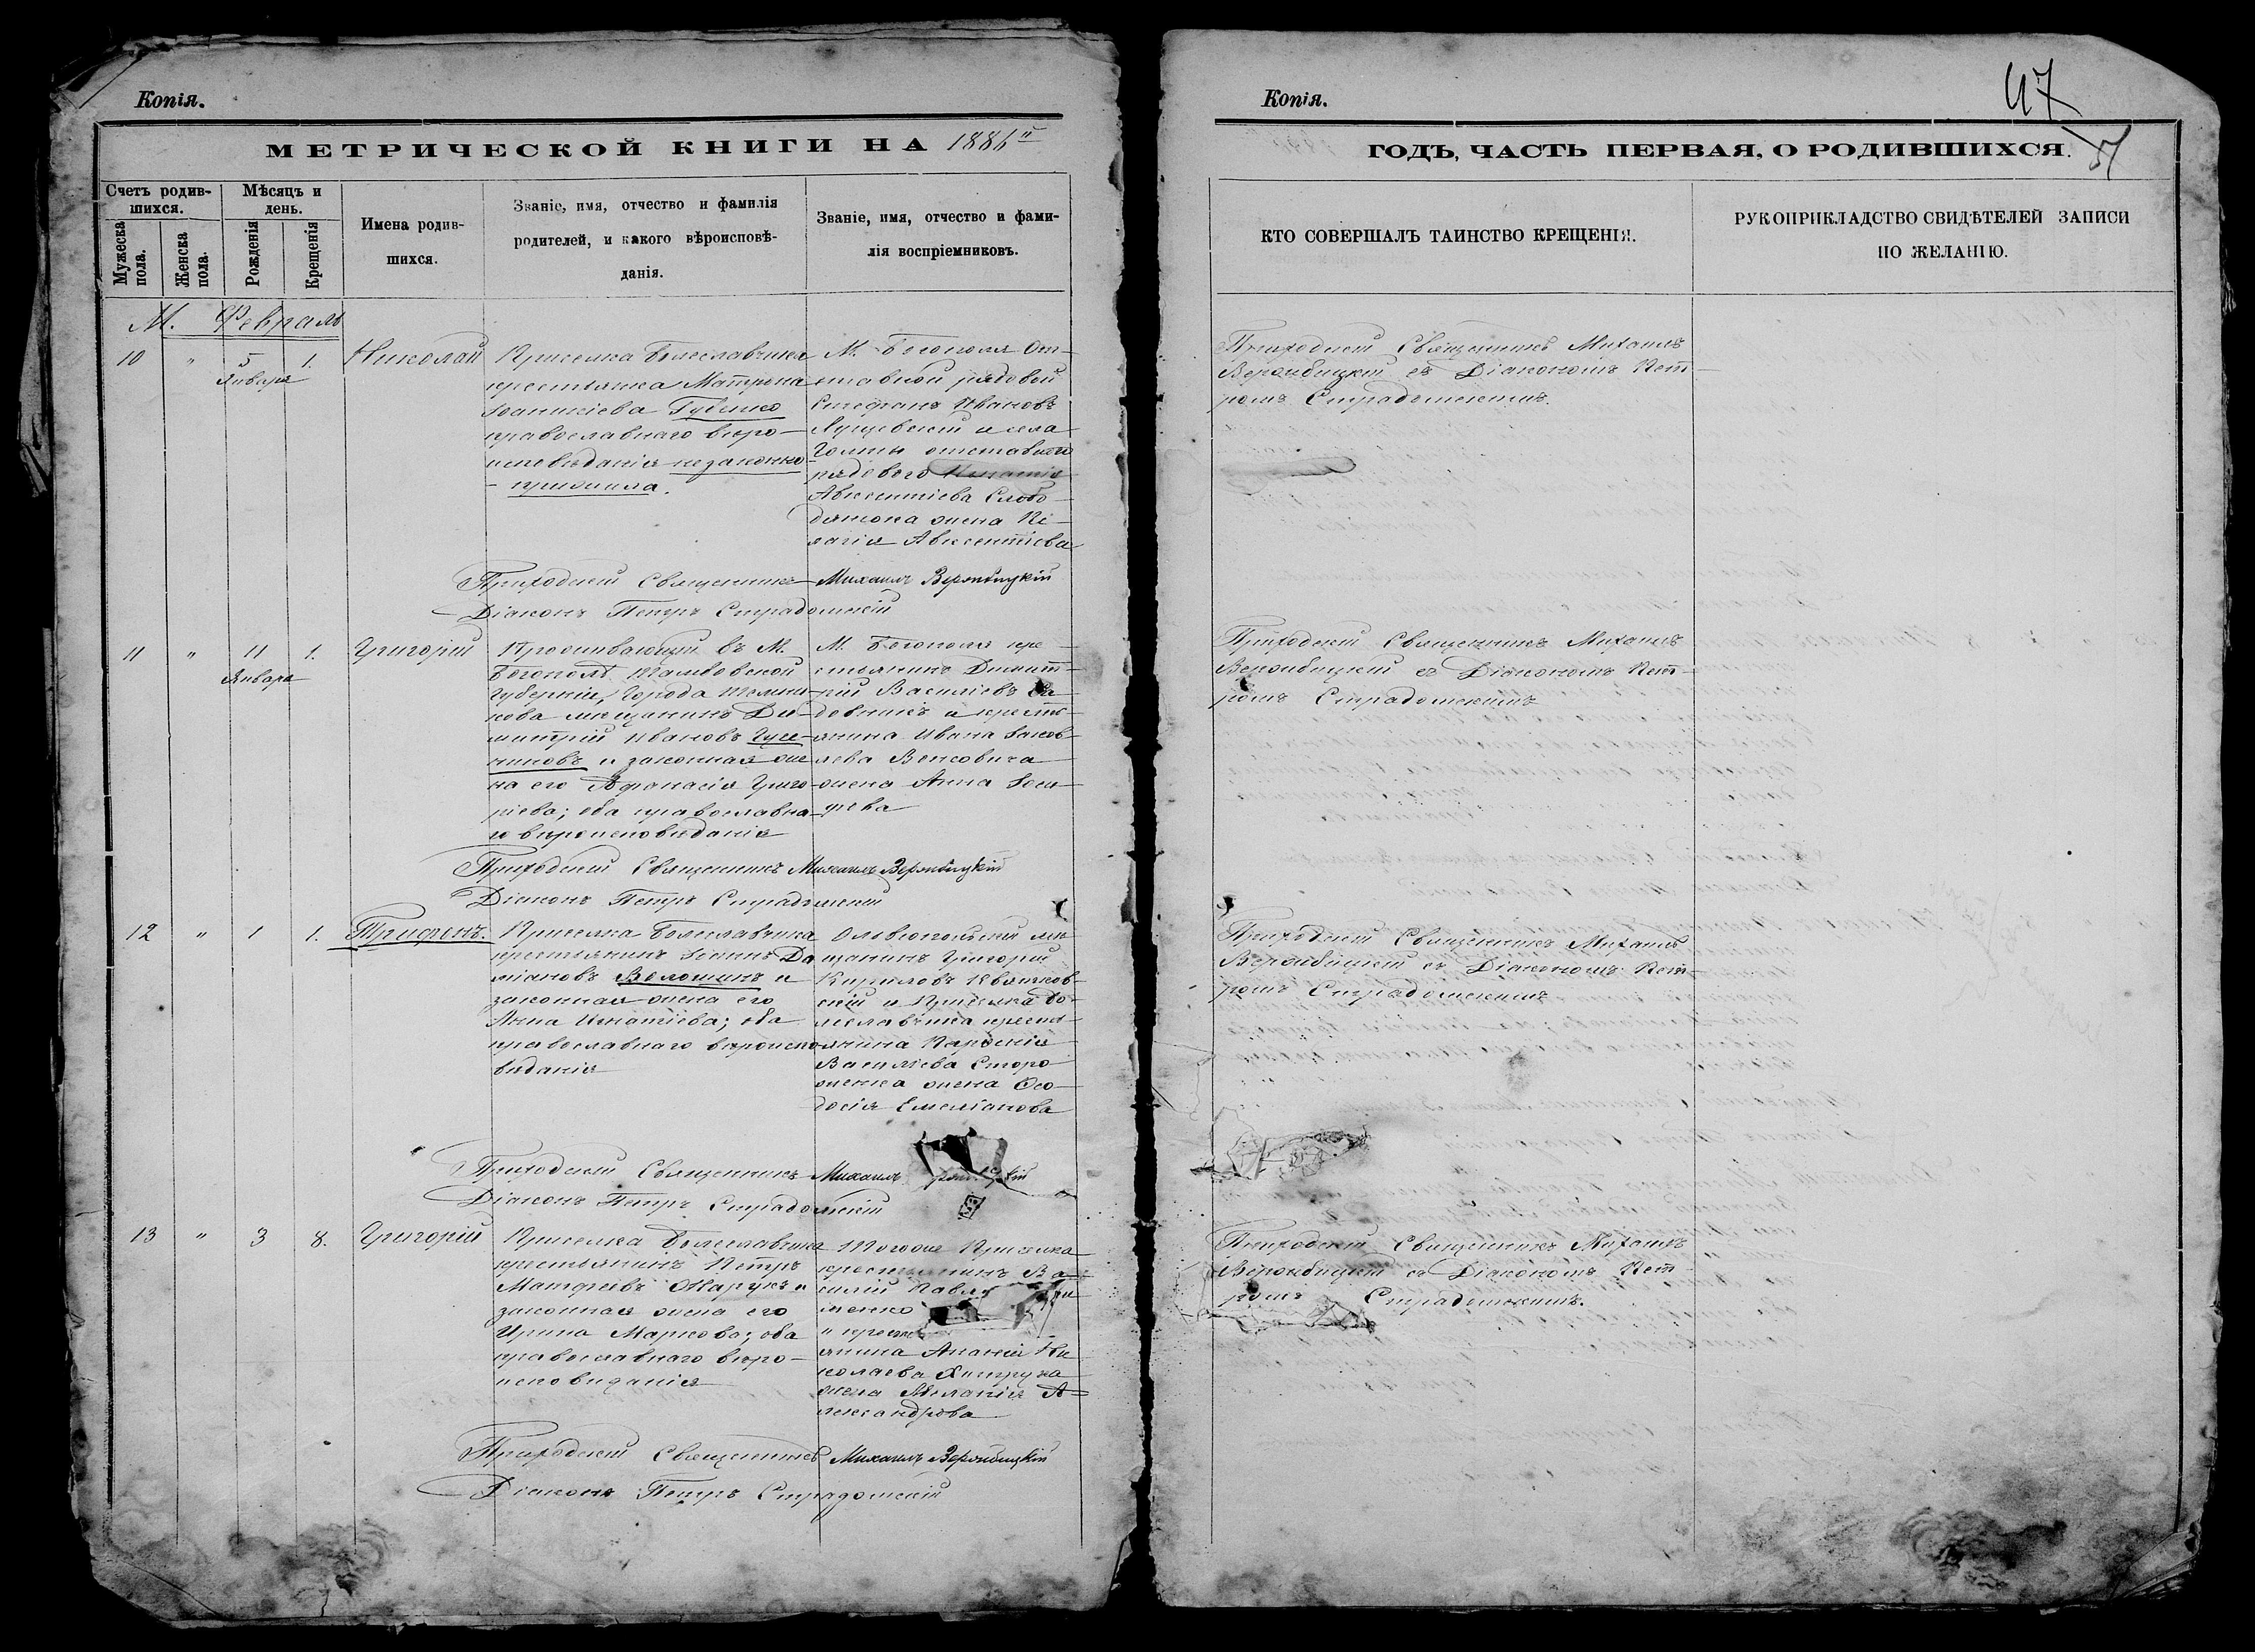 Копія.
МЕТРИЧЕСКОЙ КНИГИ НА 1886й
Счетъ родив-
шихся.
Мѣсяцъ и
день.
Мужеска
пола.
Женска
пола.
Рожденія
Крещенія
Имена родив-
шихся.
Званіе, имя, отчество и фамилія
родителей, и какого вѣроисповѣ-
данія.
Званіе, имя, отчество и фами-
лія воспріемниковъ.
М. Февраль
10 " 5 1. Николай
Января
Приселка Болеславчика
крестьянка Матрона
Іоанникіева Губенко
православнаго вѣро-
исповѣданія незаконно
прижила.
М. Богополя От-
ставной рядовой
Стефанъ Ивановъ
и села
Голты отставнаго
рядового Игнатія
Авксентіева Слобо-
дянюка жена Пе-
лагія Авксентіева
Приходскій Священникъ Михаилъ Вержбицкій
Діаконъ Петръ Страдомскій
11 " 11 1. Григорій
Января
Проживающій въ М.
Богополѣ Тамбовской
Губерніи, Города Темни-
кова мѣщанинъ Ди-
митрій Ивановъ Гусе-
нниковъ и законная же-
на его Афанасія Григо-
ріева; оба православна-
го вѣроисповѣданія
М. Богополя кре-
стьянинъ Димит-
рій Василіевъ Са-
довникъ и кресть-
янина Ивана Іаков-
лева Венсовича
жена Анна Іоси-
фева
Приходскій Священникъ Михаилъ Вержбицкій
Діаконъ Петръ Страдомскій
12 " 1 1. Трифонъ.
Приселка Болеславчика
крестьянинъ Іоаннъ Да
міановъ Волошинъ и
законная жена его
Анна Игнатіева; оба
православнаго вѣроиспо
вѣданія
Ольвіопольскій мѣ
щанинъ Григорій
Кириловъ Квятков-
скій и Приселка Бо-
леславчика кресть-
янина Парфенія
Василіева Сторо
женка жена Ѳео-
досія Емеліанова
Приходскій Священникъ Михаилъ
Діаконъ Петръ Страдомскій
13 " 3 8. Григорій
Приселка Болеславчика
крестьянинъ Петръ
Матфеевъ Онарукъ и
законная жена его
Ирина Маркова; оба
православнаго вѣро-
исповѣданія
Тогоже Приселка
крестьянинъ Ва
силій
и
янина Ананія Ни
колаева
жена Меланія А-
лександрова
Приходскій Священникъ Михаилъ Вержбицкій
Діаконъ Петръ Страдомскій
Копія.
47
57
ГОДЪ, ЧАСТЬ ПЕРВАЯ, О РОДИВШИХСЯ.
КТО СОВЕРШАЛЪ ТАИНСТВО КРЕЩЕНІЯ.
РУКОПРИКЛАДСТВО СВИДѢТЕЛЕЙ ЗАПИСИ
ПО ЖЕЛАНІЮ.
Приходскій Священникъ Михаилъ
Вержбицкій съ Діакономъ Пет-
ромъ Страдомскимъ.
Приходскій Священникъ Михаилъ
Вержбицкій съ Діакономъ Пет-
ромъ Страдомскимъ
Приходскій Священникъ Михаилъ
Вержбицкій съ Діакономъ Пет-
ромъ Страдомскимъ
Приходскій Священникъ Михаилъ
Вержбицкій съ Діакономъ Пет-
ромъ Страдомскимъ.